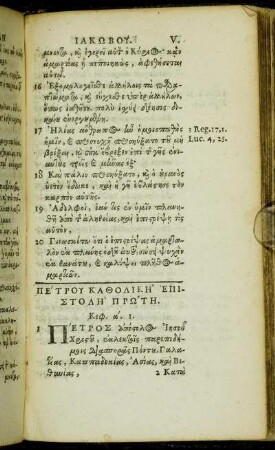 ΙΑΚΩΒΟΥ. V.
μνοντα, καὶ ἐγερεῖ αὐτὸν ὁ Κύριος· κἂν
ἁμαρτίας ᾖ πεποιηκὼς, ἀφεθήσεται
αὐτῷ.
16 Ἐξομολογεῖσθε ἀλλήλοις τὰ παρα-
πτώματα, καὶ εὔχεσθε ὑπὲρ ἀλλήλων,
ὅπως ἰαθῆτε· πολὺ ἰσχύει δέησις δι-
καίου ἐνεργουμένη.
17 Ἠλίας ἄνθρωπος ἦν ὁμοιοπαθὴς 1 Reg. 17, 1.
ἡμῖν, καὶ προσευχῇ προσηύξατο τοῦ μὴ Luc. 4, 25.
βρέξαι, καὶ οὐκ ἔβρεξεν ἐπὶ τῆς γῆς ἐνι-
αυτοὺς τρεῖς καὶ μῆνας ἕξ·
18 Καὶ πάλιν προσηύξατο, καὶ ὁ οὐρανὸς
ὑετὸν ἔδωκε, καὶ ἡ γῆ ἐβλάστησε τὸν
καρπὸν αὑτῆς.
19 Ἀδελφοί, ἐάν τις ἐν ὑμῖν πλανη-
θῇ ἀπὸ τῆς ἀληθείας, καὶ ἐπιστρέψῃ τὶς
αὐτὸν,
20 Γινωσκέτω ὅτι ὁ ἐπιστρέψας ἁμαρτω-
λὸν ἐκ πλάνης ὁδοῦ αὐτοῦ, σώσει ψυχὴν
ἐκ θανάτου, καὶ καλύψει πλῆθος ἁ-
μαρτιῶν.
ΠΕΤΡΟΥ ΚΑΘΟΛΙΚΗ ἘΠΙ-
ΣΤΟΛΗ ΠΡΩΤΗ.
Κεφ. α΄. 1.
1 ΠΕΤΡΟΣ ἀπόστολος Ἰησοῦ
Χριστοῦ, ἐκλεκτοῖς παρεπιδή-
μοις διασπορᾶς Πόντου, Γαλα-
τίας, Καππαδοκίας, Ἀσίας, καὶ Βι-
θυνίας, 2 Κατὰ